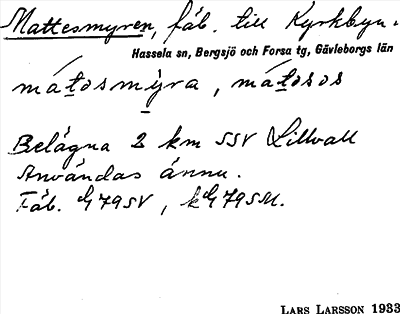 Mattesmyren, fäb. till Kyrkbyn.
Hassela sn, Bergsjö och Forsa tg, Gävleborgs län
mátosmỳra, mátosos
Belägna 2 km SSV Lillvall
Användas ännu.
Fäb. G79SV, kG79SM.
LARS LARSSON 1933